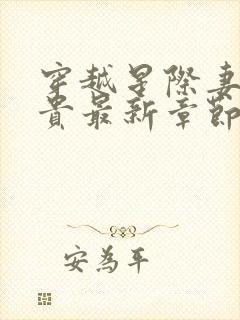 穿越星際妻
貴最新章節
安為平